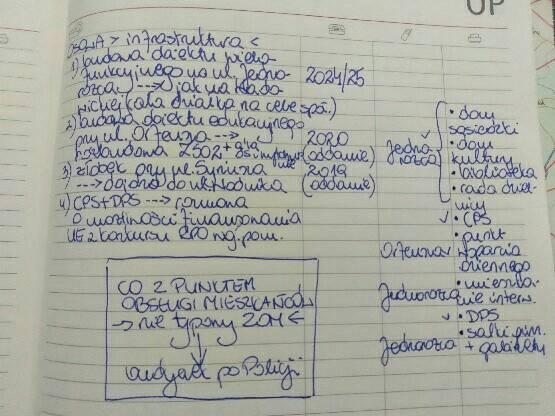 UP
OSOWA > infrastruktura <
1) budowa obiektu wielo-
funkcyjnego na ul. Jedno-
rożca ---> jak na Kłada
wichej (cała działka na cele społ.)
2024/25
2) budowa obiektu edukacyjnego
przy ul. Ortenza --->
rozbudowa ZSO2 +
2020
(oddanie)
3) żłobek przy ul. Syriusza
---> dojazd od ul. Wodnika
2019
(oddanie)
4) CPS + DPS ---> rozmowa
o możliwości finansowania
UE z konkursu RPO woj. pom.
CO Z PUNKTEM
OBSŁUGI MIESZKAŃCÓW
-> nie typowy ZOM <-
budynek po Policji
Jedno-
rożca
• dom
sąsiedzki
• dom
kultury
• biblioteka
• rada dziel-
nicy
• CPS
• punkt
wsparcia
dziennego
• mieszka-
nie interw.
Jednorożca
• DPS
Jednorożca
• salki gim.
+ gabinety